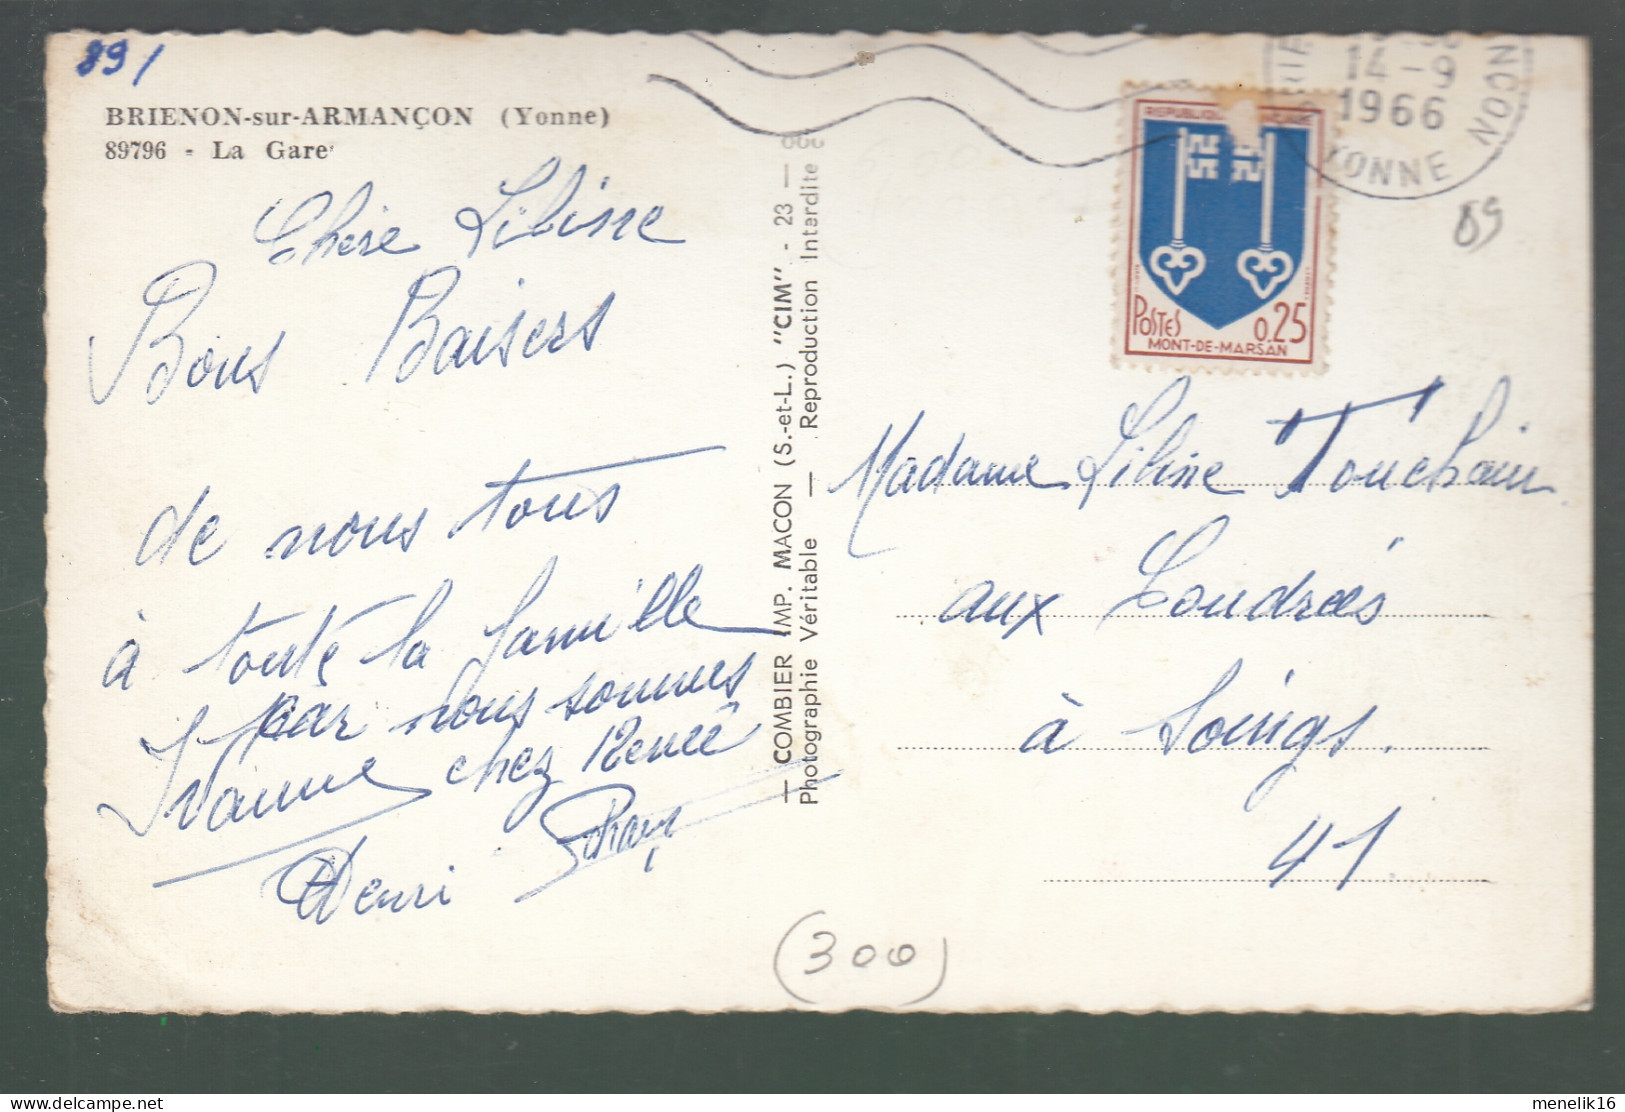 89 /
BRIENON-sur-ARMANÇON (Yonne)
89796 - La Gare
Chère Liline
Bons Baisers
de nous tous
à toute la famille
par nous sommes
Yvanne chez Renée
Henri
— COMBIER IMP. MACON (S.-et-L.) "CIM" - 23 —
Photographie Véritable — Reproduction Interdite
14-9
1966
YONNE
REPUBLIQUE
POSTES 0,25
MONT-DE-MARSAN
89
Madame Liline Touchain
aux Coudrées
à Soings.
41
(300)
delcampe.net
menelik16